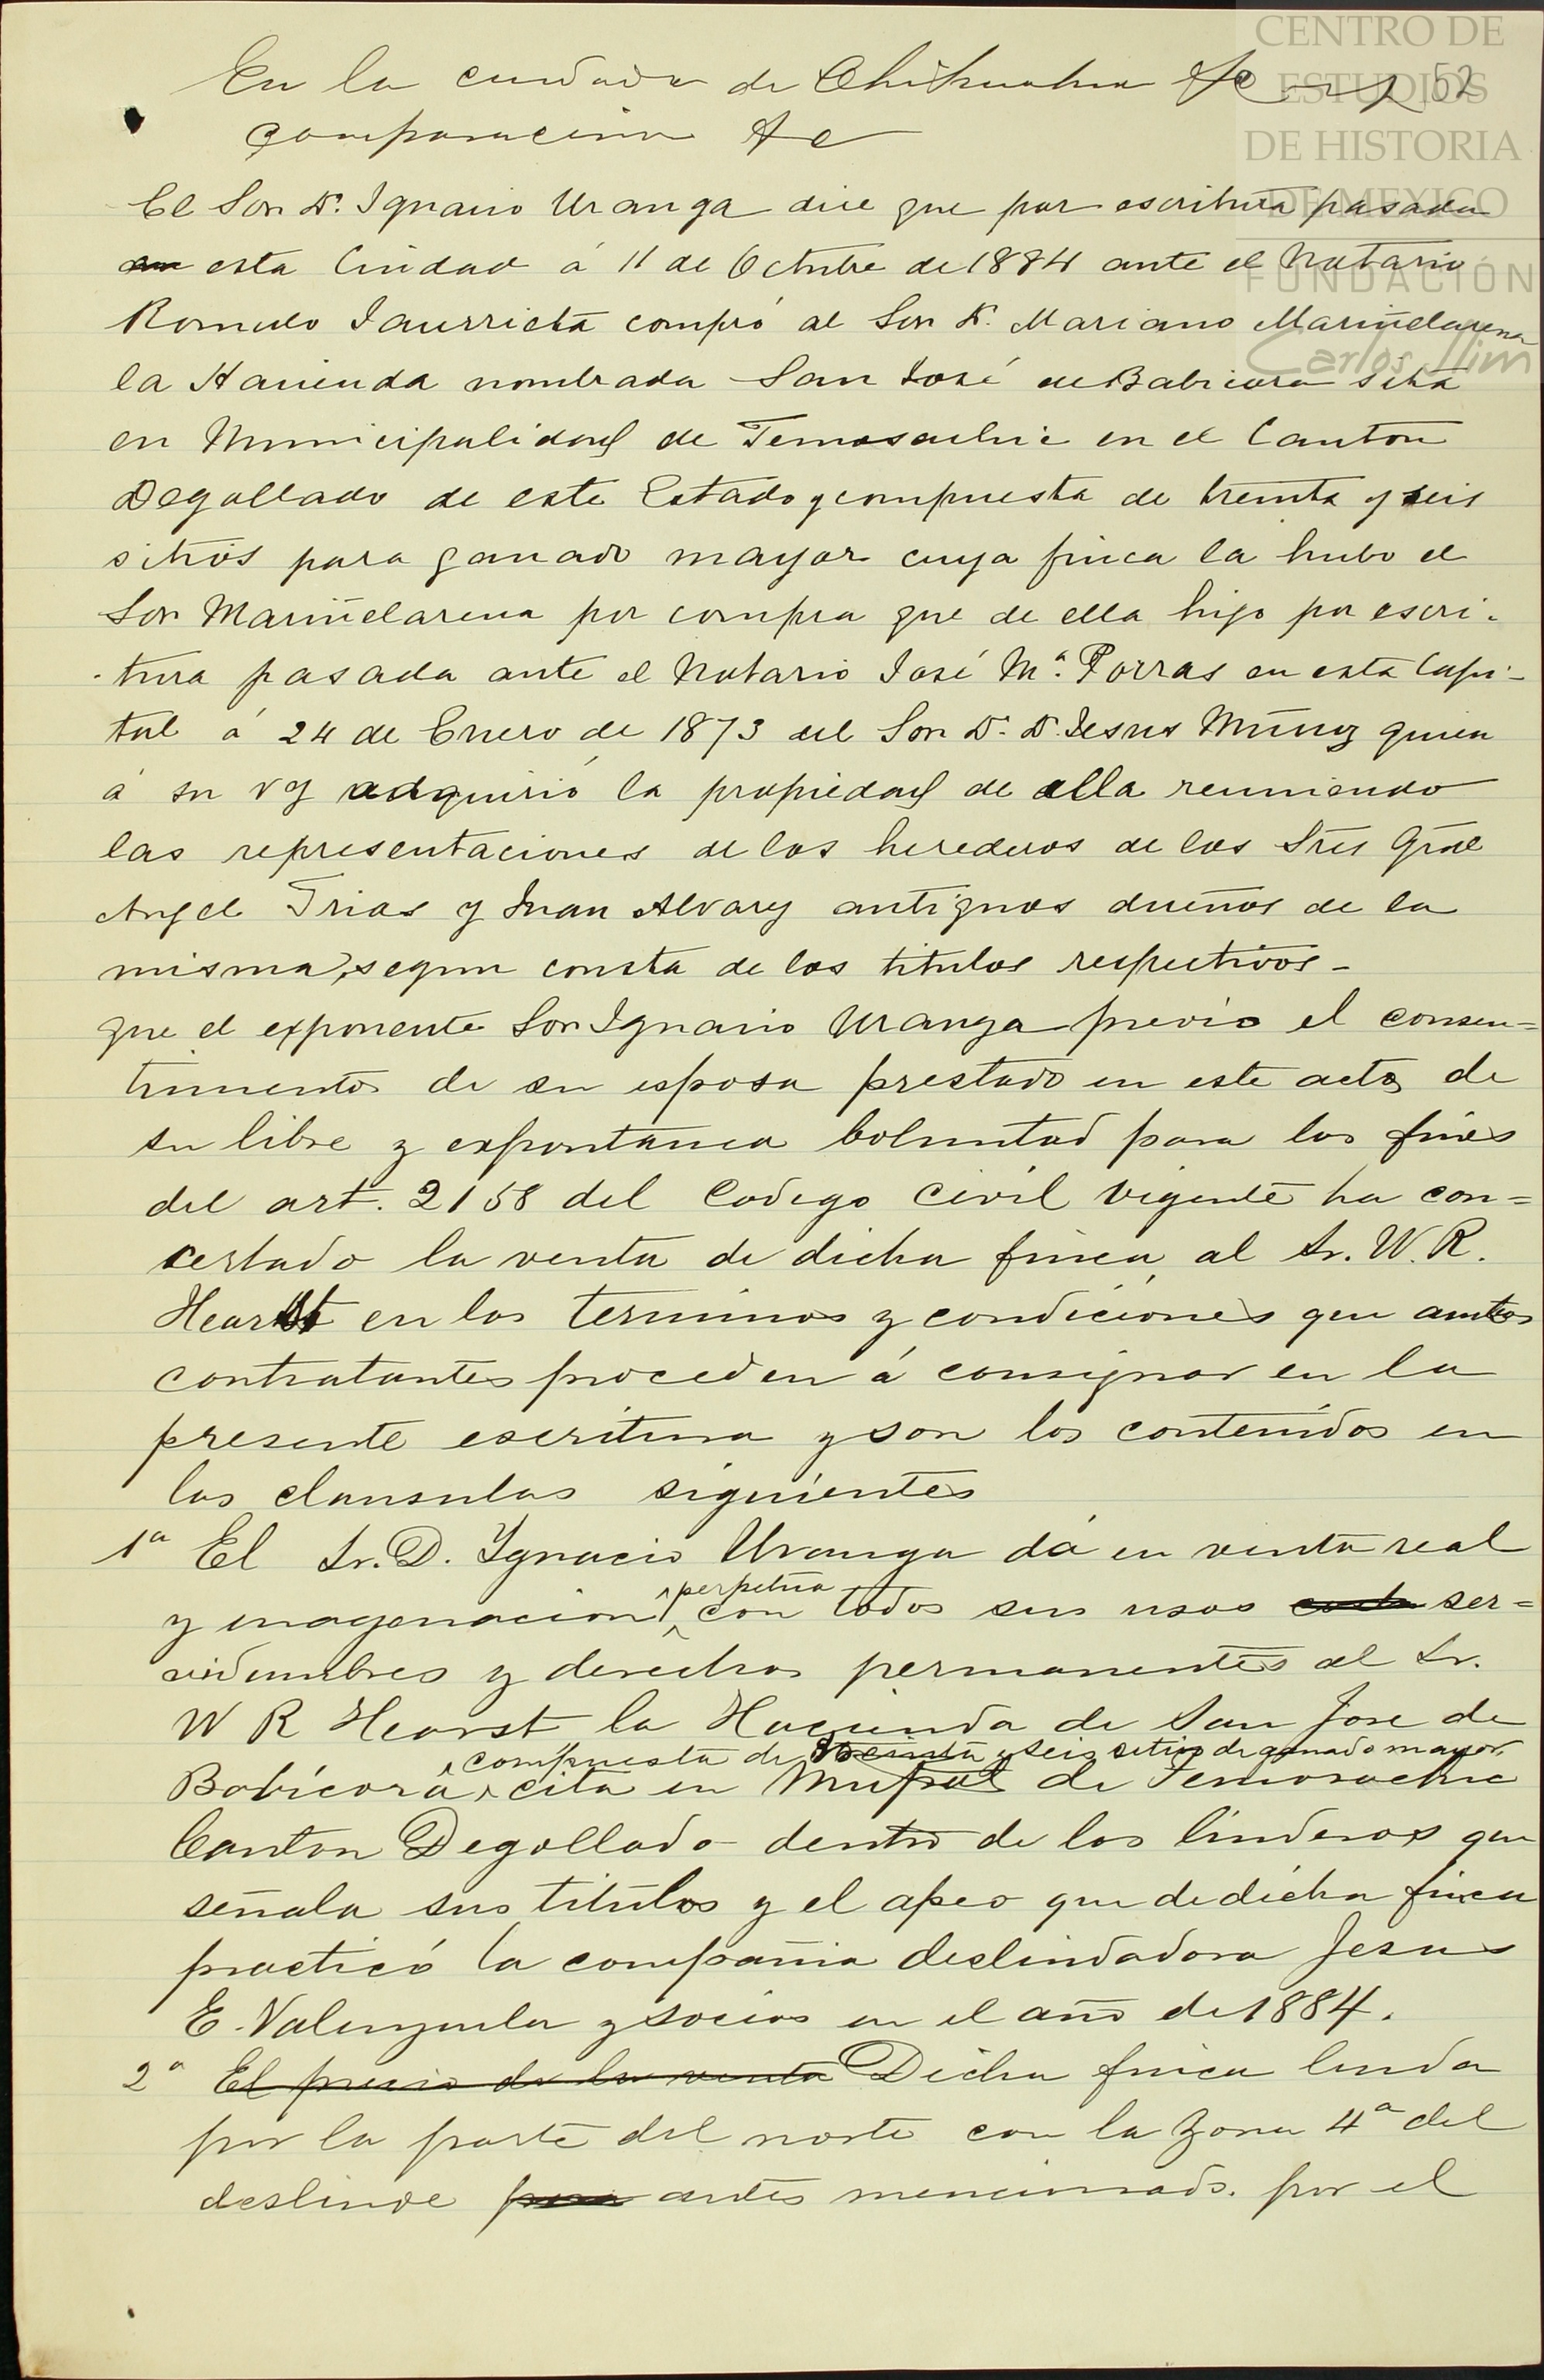 En la ciudad de Chihuahua &c 52
comparecieron &c
El Sor. D. Ignacio Uranga dice que por escritura pasada
en esta Ciudad á 11 de Octubre de 1884 ante el Notario
Romulo Jaurrieta compró al Sor D. Mariano Mariñelarena
la Hacienda nombrada San José de Babicora sita
en Municipalidad de Temosachic en el Canton
Degollado de este Estado y compuesta de treinta y seis
sitios para ganado mayor cuya finca la hubo el
Sor Mariñelarena por compra que de ella hizo por escri-
-tura pasada ante el Notario José Mª. Porras en esta Capi-
tal á 24 de Enero de 1873 del Sor D. D. Jesus Muñoz quien
á su vez adquirió la propiedad de ella reuniendo
las representaciones de los herederos de los Sres Gral
Angel Trias y Juan Alvarez antiguos dueños de la
misma, segun consta de los titulos respectivos-
que el exponente Sor Ignacio Uranga previo el consen=
timiento de su esposa prestado en este acto de
su libre y expontanea boluntad para los fines
del art. 2158 del Codego Civil vigente ha con=
certado la venta de dicha finca al Sr. W. R.
Hearst en los terminos y condiciones que ambos
contratantes proceden á consignar en la
presente escritura y son los contenidos en
las clausulas siguientes
1ª El Sr. D. Ygnacio Uranga dá en venta real
y enagenacion perpetua con todos sus usos ser=
vidumbres y derechos permanentes al Sr.
W R Hearst la Hacienda de San Jose de
Babícora compuesta de treinta y seis sitios de ganado mayor cita en Mupal de Temosachic
Canton Degollado dentro de los linderos que
señala sus titulos y el apeo que de dicha finca
practicó la compañia deslindadora Jesus
E. Valenzuela y socios en el año de 1884.
2ª El precio de la venta Dicha finca linda
por la parte del norte con la Zona 4ª del
deslinde para antes mencionado. por el
CENTRO DE
ESTUDIOS
DE HISTORIA
DE MEXICO
FUNDACIÓN
Carlos Slim